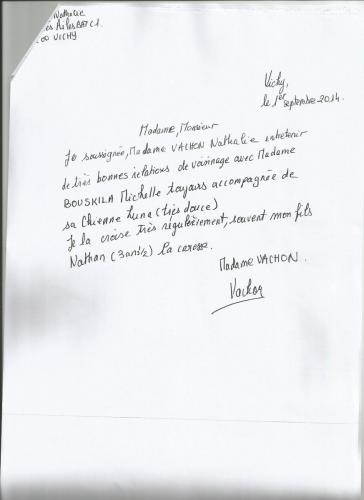 Nathalie
Ailes BAT C1.
00 VICHY
Vichy,
le 1er septembre 2014.
Madame, Monsieur
Je soussignée, Madame VACHON Nathalie entretenir
de très bonnes relations de voisinage avec Madame
BOUSKILA Michelle toujours accompagnée de
sa Chienne Luna (très douce)
Je la croise très régulièrement, souvent mon fils
Nathan (3 ans 1/2) la caresse.
Madame VACHON.
Vachon